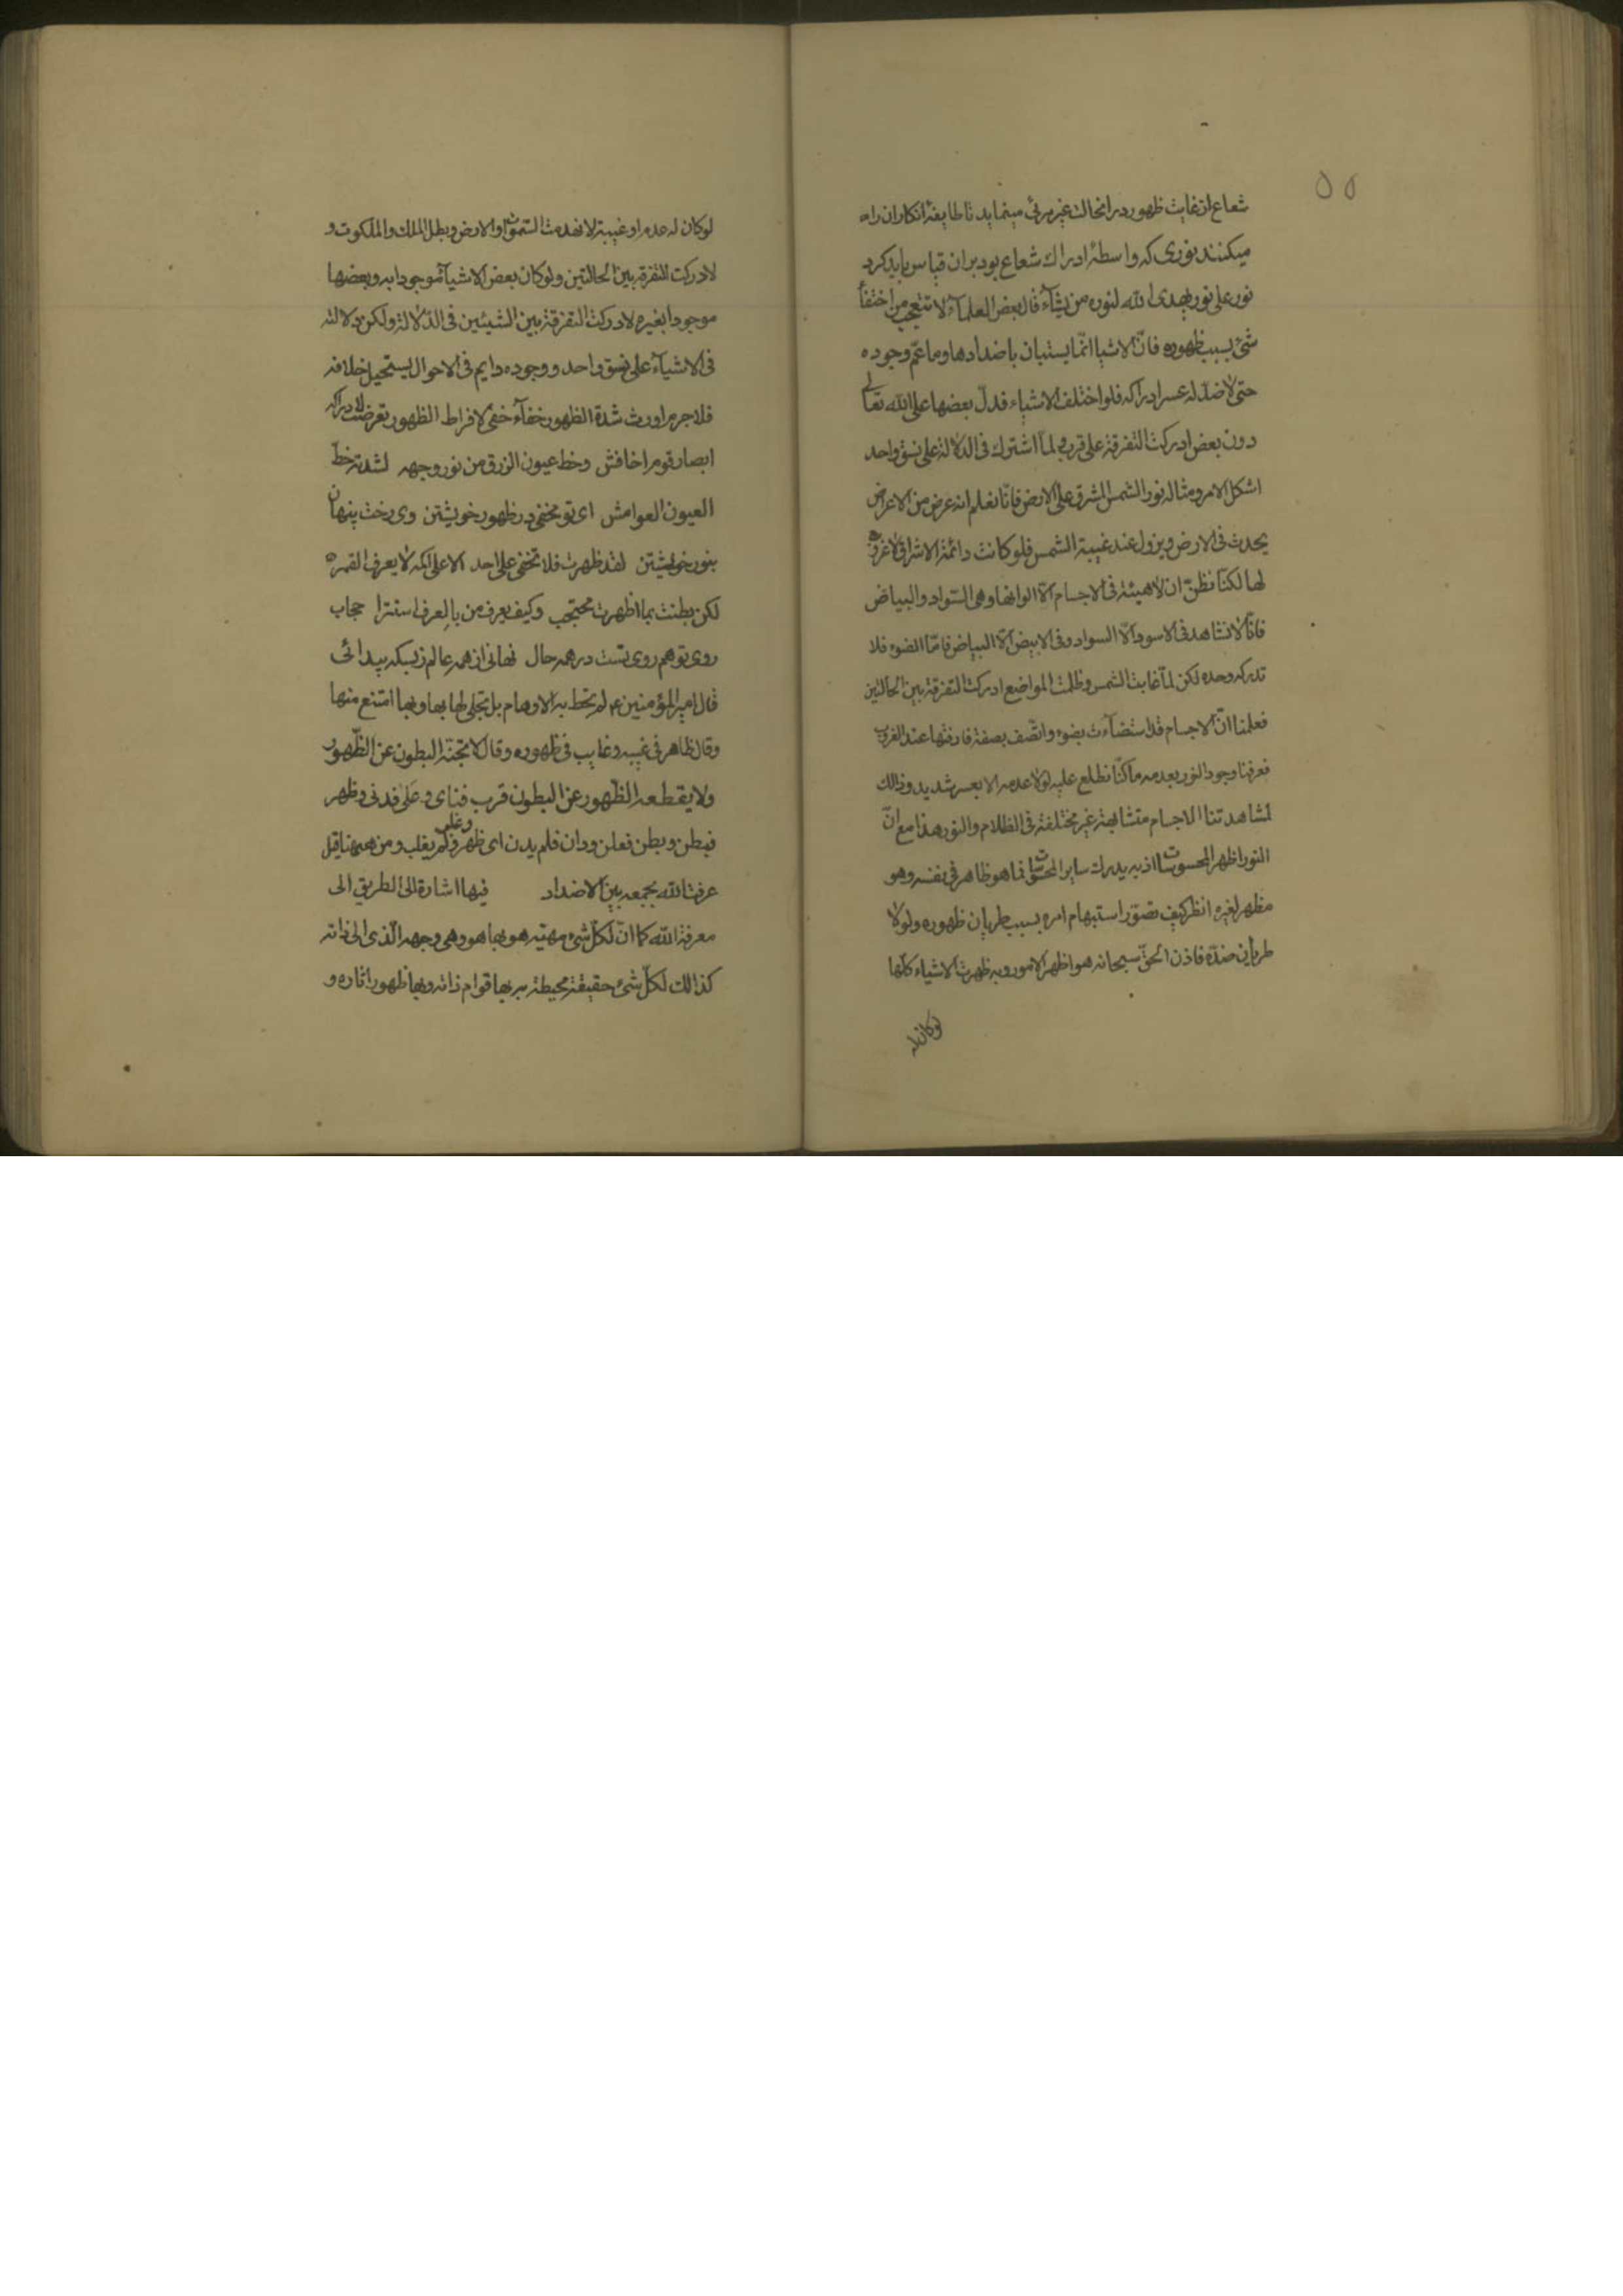 ٥٥
شعاع از غایت ظهور در انحالت غیر مرئی مینماید تا طایفهٔ انکار ان راه
میکنند نوری که واسطهٔ ادراک شعاع بود بران قیاس باید کرد
نور علی نور یهدی الله لنوره من یشآء قال بعض العلمآء لا تتعجب من اختفآء
شئ بسبب ظهوره فانّ الاشیا انّما یستبان باضدادها و ما عمّ وجوده
حتی لا ضدّ له عسر ادراکه فلو اختلف الاشیاء فدلّ بعضها علی الله تعالی
دون بعض ادرکت التفرقة علی قرب و لمّا اشترک فی الدلالة علی نسق واحد
اشکل الامر و مثاله نور الشمس المشرق علی الارض فانّا نعلم انه عرض من الاعراض
یحدث فی الارض و یزول عند غیبة الشمس فلو کانت دائمة الاشراق لا غروب
لها لکنّا نظنّ ان لا هیئة فی الاجسام الّا الوانها و هی السّواد و البیاض
فانّا لا نشاهد فی الاسود الّا السواد و فی الابیض الّا البیاض فامّا الضوء فلا
تدرکه وحده لکن لمّا غابت الشمس و ظلمت المواضع ادرکت التفرقة بین الحالتین
فعلمنا انّ الاجسام قد استضآءت بضوء و اتّصف بصفة فارقتها عند الغروب
فعرفنا وجود النور بعدمه ما کنّا نطلع علیه لولا عدمه الا بعسر شدید و ذالک
لمشاهدتنا الاجسام متشابهة غیر مختلفة فی الظلام و النور هذا مع انّ
النور اظهر المحسوسات اذ به یدرک سایر المحسوسات فما هو ظاهر فی نفسه و هو
مظهر لغیره انظر کیف تصوّر استبهام امره بسبب طریان ظهوره و لولا
طریان ضدّه فاذن الحقّ سبحانه هو اظهر الامور و به ظهرت الاشیاء کلّها
لو کان له
لو کان له عدم او غیبة لانهدمت السّموات و الارض و بطل الملک و الملکوت و
لادرکت التفرقة بین الحالتین و لو کان بعض الاشیآء موجودا به و بعضها
موجودا بغیره لادرکت التفرقة بین الشیئین فی الدّلالة و لکن دلالته
فی الاشیآء علی نسق واحد و وجوده دایم فی الاحوال یستحیل خلافه
فلا جرم اورث شدة الظهور خفآء خفی لافراط الظهور تعرضت لادراکه
ابصار قوم اخافش و خط عیون الزرق من نور وجهه لشدته خطّ
العیون العوامش ای تو مخفی در ظهور خویشتن وی رخت پنهان
بنور خویشتن لقد ظهرت فلا تخفی علی احد الا علی اکمه لا یعرف القمره
لکن بطنت بما اظهرت محتجب و کیف یعرف من بالعرف استترا حجاب
روی تو هم روی تست در همه حال نهانی از همه عالم ز بسکه پیدائی
قال امیر المؤمنین ع لم تحط به الاوهام بل تجلی لها بها و بها امتنع منها
و قال ظاهر فی غیبه و غایب فی ظهوره و قال لا تجنّه البطون عن الظّهور
و لا یقطعه الظّهور عن البطون قرب فنای و علی فدنی و ظهر
فبطن و بطن فعلن و دان فلم یدن ای ظهر و غلب و لم یغلب و من ههنا قیل
عرفت الله بجمعه بین الاضداد فیها اشارة الی الطریق الی
معرفة الله کما انّ لکلّ شئ مهیّة هو بها هو و هی وجهه الّذی الی ذاته
کذالک لکلّ شئ حقیقة محیطة به بها قوام ذاته و بها ظهور اثاره و